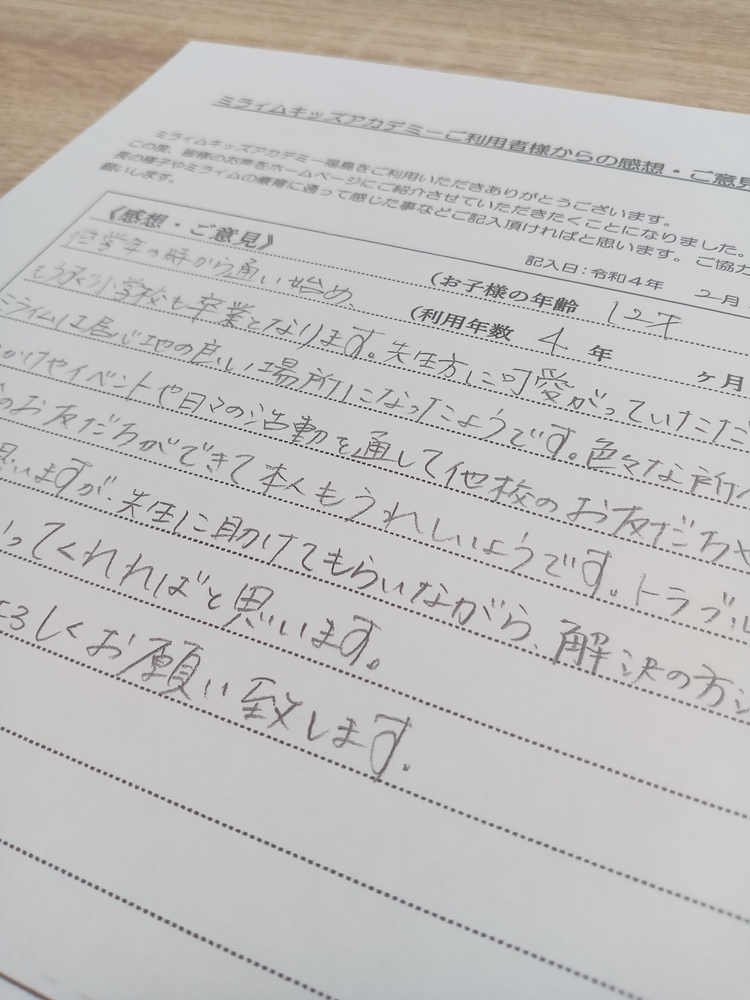 ミライムキッズアカデミーご利用者様からの感想・ご意見
ミライムキッズアカデミー福島をご利用いただきありがとうございます。
この度、皆様のお声をホームページにご紹介させていただきたくことになりました。
長の様子やミライムの療育に通って感じた事などご記入頂ければと思います。ご協力
願いします。
記入日:令和4年 2月
《感想・ご意見》 (お子様の年齢 12才
(利用年数 4年 ヶ月
低学年の時から通い始め、
もうすぐ小学校も卒業となります。先生方に可愛がっていただ
ミライムは居心地の良い場所になったようです。色々な所へ
かけやイベントや日々の活動を通して他校のお友だちや
のお友だちができて本人もうれしいようです。トラブル
思いますが、先生に助けてもらいながら、解決の方
ってくれればと思います。
よろしくお願い致します。